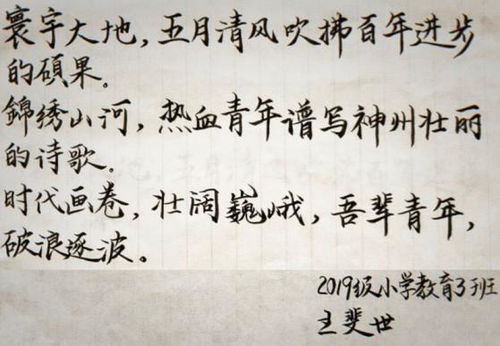 寰宇大地，五月清风吹拂百年进步
的碩果。
錦绣山河，热血青年谱写神州壮丽
的诗歌。
时代画卷，壮阔巍峨，吾辈青年，
破浪逐波。
2019级小学教育3班
王斐世